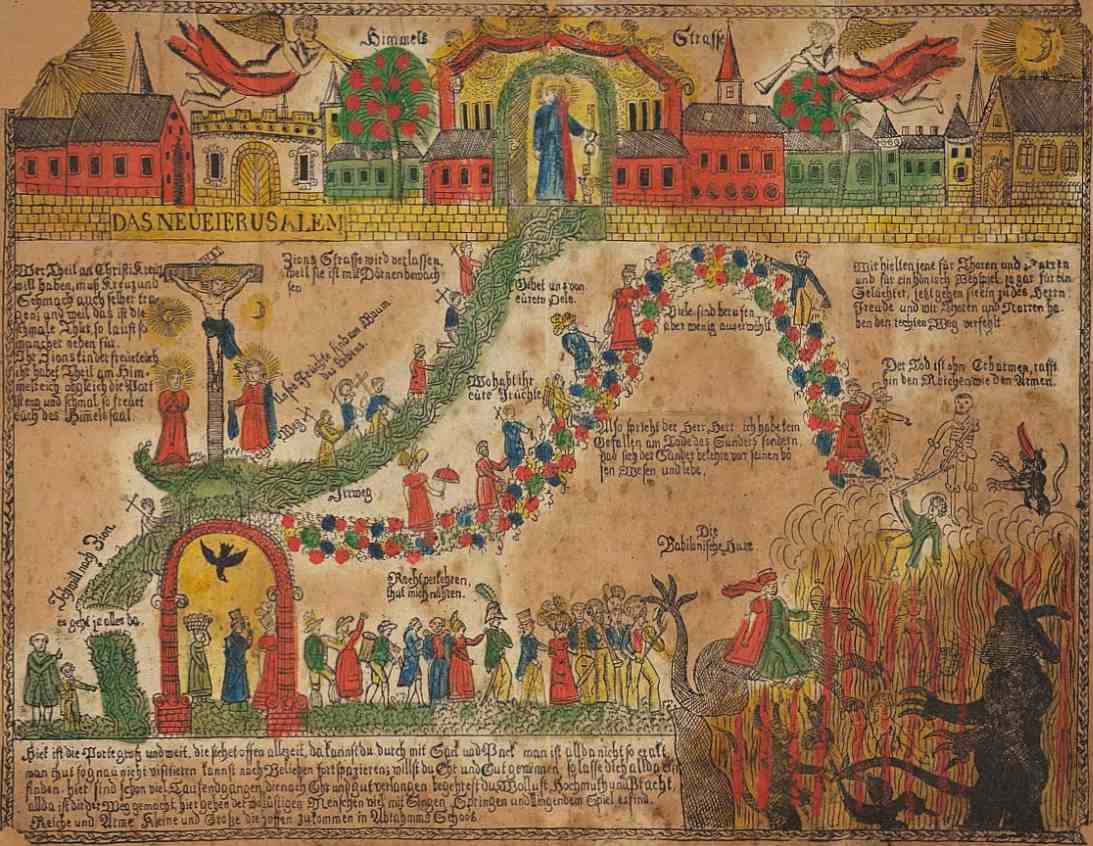 Himmels Strasse
DAS NEUE IERUSALEM
INRI
Wer Theil an Christi Kreuz
will haben, muß Kreuz und
Schmach auch selber tra-
gen; und weil das ist die
schmale Thür so lauft so
mancher neben für.
Ihr Zions kinder freuet euch
ihr habet Theil am Him-
melreich obgleich die Port
ist eng und schmal so freuet
euch des Himels saal.
Zions Strasse wird verlassen,
weil sie ist mit Dörnen bewach-
sen
Gebet uns von
eurem Oele.
Viele sind berufen,
aber wenig auserwöhlt.
Wir hielten jene für Thoren und Narren
und für ein hönisch Beyspiel, ja gar für ein
Gelächter, jetzt gehen sie ein zu des Herrn
Freude und wir Thoren und Narren ha-
ben den rechten Weg verfehlt.
Der Tod ist ohn Erbarmen, rafft
hin den Reichen wie den Armen.
Früchte sind am Baum
des Lebens.
Weg
Wo habt ihr
eure Früchte
Also spricht der Herr, Herr ich habe kein
Gefallen am Tode des Sünders sondern,
das sich der Sünder bekehre von seinen bö
sen Wesen und lebe.
Irrweg
Ich will nach Zion
es geht ja alles da.
Recht verkehren,
that mich nähren.
Die
Babilonische Hure
Hier ist die Porte groß und weit, die stehet offen allezeit, da kannst du durch mit Sack und Pack man ist allda nicht so exakt,
man thut so gnau nicht visitieren kannst nach Belieben fortspazieren; willst du Ehr und Gut gewinnen, so lasse dich allda
finden. hier sind schon viel Tausend gangen, die nach Ehr und gut verlangen begehrest du Wollust, Hochmuth und Pracht,
allda ist dir der Weg gemacht, hier gehen der wollüstigen Menschen viel mit Singen, Springen und klingendem Spiel
Reiche und Arme Kleine und Große die hoffen zukommen in Abrahams Schoos.